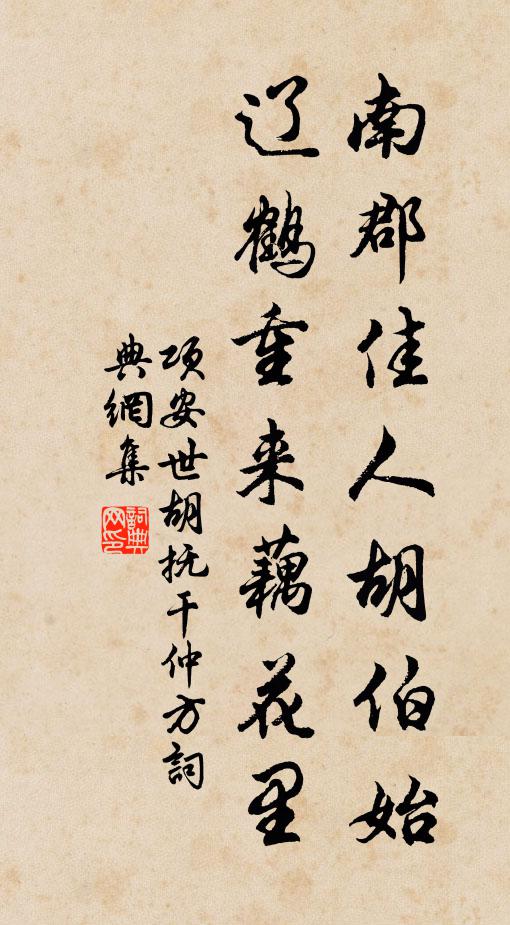 南郡佳人胡伯始
辽鹤重来藕花里
项安世胡抚干仲方詞
典網集
詞典
网印